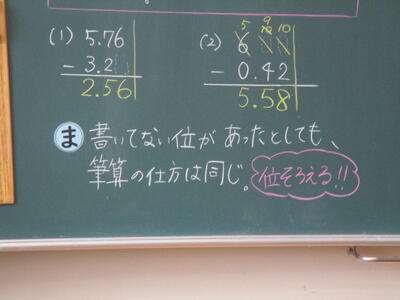 (1) 5.76
− 3.2
2.56
(2) 5 9 10 10
6
− 0.42
5.58
ま 書いてない位があったとしても、
筆算の仕方は同じ。 位そろえる!!